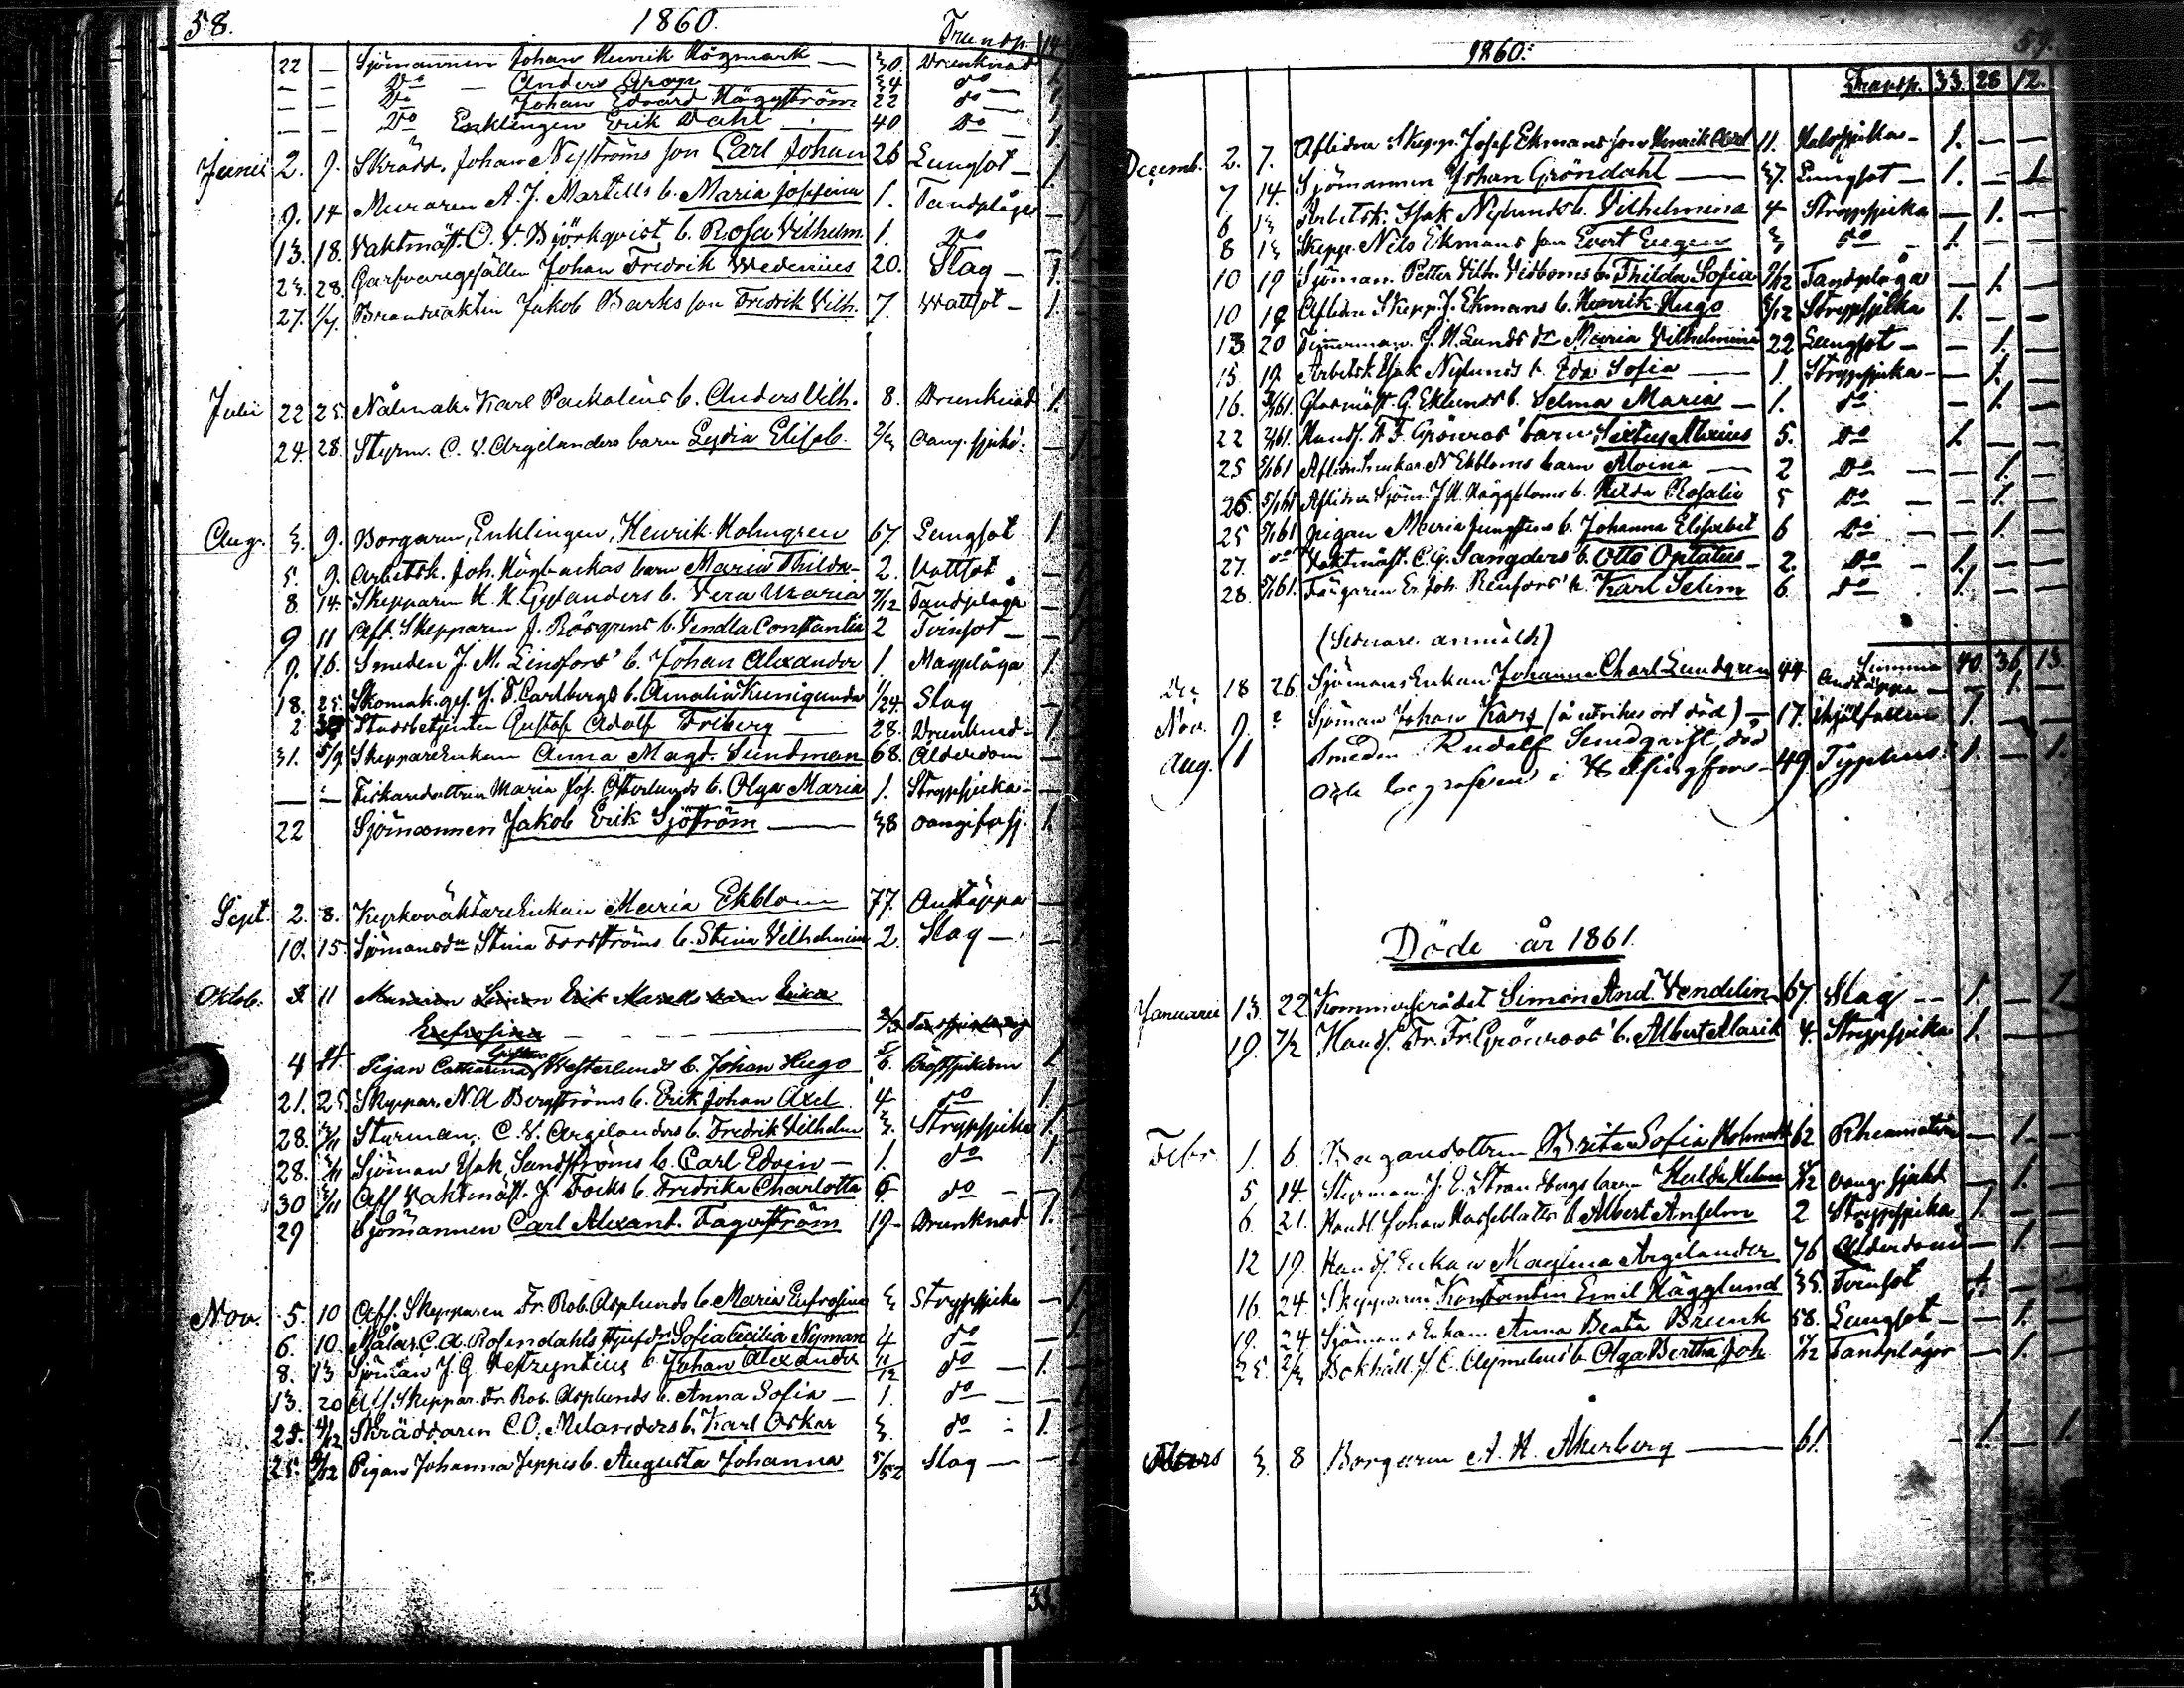 58. 1860.
Transp. 14
22 — Sjömannen Johan Henrik Högmark — 30 Drunknad 1.
— — Do — Anders Grägg — 34 do — 1.
— — Do Johan Edvard Häggström 22 do — 1.
— — Do Enklingen Erik Dahl 40 Do — 1.
Junii 2. 9. Skrädd. Johan Nyströms son Carl Johan 26 Lungsot — 1.
9. 14 Muraren A. J. Martells b. Maria Josefina 1. Tandplåga —
13. 18. Vaktmäst. O. V. Björkqvist b. Rosa Vilhelm. 1. Do —
23. 28. Garfvaregesällen Johan Fredrik Wedenius 20. Slag — 1.
27. 1/7. Brandvakten Jakob Barks son Fredrik Vilh. 7. Wattsot — 1.
Julii 22 25. Nålmak. Karl Packalens b. Anders Vilh. 8. Drunknad 1.
24. 28. Styrm. C. V. Argelanders barn Lydia Elisab. 2/3 Oang. sjukd. —
Aug. 3. 9. Borgaren, Enklingen, Henrik Holmgren 67. Lungsot 1
5. 9. Arbetsk. Joh. Högbackas barn Maria Thilda 2. Vattsot —
8. 14. Skepparen K. H. Gylanders b. Vera Maria 7/12 Tandplåga —
9 11 Afl. Skepparen J. Rosgrens b. Vendla Constantia 2 Tvinsot —
9. 16. Smeden J. M. Linsfors' b. Johan Alexander 1. Magplåga 1.
18. 25. Skomak. ges. J. F. Carlbergs b. Amalia Kunigunda 1/24. Slag —
2 Stadsbetjenten Gustaf Adolf Friberg — 28. Drunknad — 1
31. 5/9. Skeppare Enkan Anna Magd. Sundman 68. Ålderdom —
— — Fiskaredottren Maria Jos. Österlunds b. Olga Maria 1. Strypsjuka —
22 Sjömannen Jakob Erik Sjöström — 38 oangifv. sj. 1.
Sept. 2. 8. Kyrkoväktare Enkan Maria Ekblom 77. Andtäppa —
10. 15. Sjömansdr Stina Forsströms b. Stina Vilhelmina 2. Slag — —
Oktob. 11 Muraren Simon Erik Martells barn Erika
Eufrosina — — — 2/3
4 11. Pigan Catharina Gustava Westerlunds b. Johan Hugo 5/6. Bröstsjukdom 1
21. 25. Skeppar. N. A. Bergströms b. Erik Johan Axel 4 do 1.
28. 3/11 Styrman. C. V. Argelanders b. Fredrik Vilhelm 3. Strypsjuka 1.
28. 3/11 Sjöman Isak Sandströms b. Carl Edvin — 1. do 1.
30 3/11 Afl. Vaktmäst. J. Focks b. Fredrika Charlotta 6 do —
29 Sjömannen Carl Alexand. Fagerström 19 Drunknad 1.
Nov. 5. 10 Afl. Skepparen Fr. Rob. Asplunds b. Maria Eufrosina 3 Strypsjuka —
6. 10. Målar. C. A. Rosendahls stjufdr. Sofia Cecilia Nyman 4 do —
8. 13 Sjöman J. G. b. Johan Alexander 11/12 do — 1.
13. 20 Afl. Skeppar. Fr. Rob. Asplunds b. Anna Sofia — 1. do —
28. 4/12 Skräddaren C. O. Melanders b. Karl Oskar 3. do — 1.
25. 2/12 Pigan Johanna Jeppes b. Augusta Johanna 5/52 Slag — —
33.
1860. 59.
Transp. 33. 28 12.
Decemb. 2. 7. Aflidne Skepp. Josef Ekmans son Henrik Axel 11. Halssjuka — 1. — —
7 14. Sjömannen Johan Gröndahl — 37. Lungsot — 1. — 1.
6 13 Arbetsk. Isak Nylunds b. Vilhelmina 4 Strypsjuka — 1. —
8 13 Skepp. Nils Ekmans son Evert Eugen 3 do — 1. — —
10 19 Sjöman. Petter Vilh. Vidboms b. Thilda Sofia 9/12 Tandplåga — 1. —
10 19 Aflidne Skepp. J. Ekmans b. Henrik Hugo 3/12 Strypsjuka 1. — —
13 20 Timmerman. J. H. Lunds dr Maria Vilhelmina 22 Lungsot — — 1. —
15 19. Arbetsk. Isak Nylunds b. Eda Sofia — 1. Strypsjuka — 1. —
16. Glasmäst. G. Eklunds b. Selma Maria — 1. do — 1. —
22 Handl. F. F. Grönroos' barn Sixtus Alexius 5. Do 1. — —
25 5/1 61 Aflidne N Ekbloms barn Alvina — 2 Do — 1. —
26. 5/1 61 Aflidne Sjöm. J. H. Häggbloms b. Hilda Rosalie 5 Do — 1. —
25 5/1 61 Pigan Maria Jungstens b. Johanna Elisabet 6 Do — 1. —
27. do Vaktmäst. C. G. Sangders b. Otto Optatus — 2. Do — 1. —
28. 5/1 61. Färgaren Er. Joh. Renfors' b. Karl Selim 6 Do — 1. —
(Senare anmälde)
Summa 40. 36. 13.
Dec 18 26. Sjömans Enkan Johanna Charl. Lundgren 44 Andtäppa — — 1. —
Nov. 9. ? Sjöman Johan Kars (å utrikes ort död) — 17. ihjälfallen 1. — —
Aug. 1 Smeden Rudolf Lindqvist, död
och begrafven i Helsingfors — 49. Typhus 1. — 1.
Döde år 1861.
Januarii 13. 22. Kommerserådet Simon And. Vendelin 67. Slag — — 1. — 1.
19. 7/2 Handl. Fr. Fr. Grönroos' b. Albert Alarik 4. Strypsjuka 1. —
Febr. 1. 6. Brita Sofia 62 Rheumatism — 1. —
5 14. Styrman J. E. Strandbergs barn oang. sjukd. — 1. —
6. 21. Handl. Johan Hasselblatts b. Albert Anselm 2 Strypsjuka 1. — —
12 19. Handl. Enkan Magdalena Argelander 76 Ålderdom — 1. —
16. 24 Skepparen Konstantin Emil Hägglund 35. Tvinsot 1. — —
19. 24 Sjömans Enkan Anna Beata Brunk 58. Lungsot — 1. —
25. 2/3 Bokhåll. b. Olga Bertha Joh. Tandplågor — 1. —
Mars 3. 8 Borgaren A. H. Åkerberg — 61. — 1. — 1.